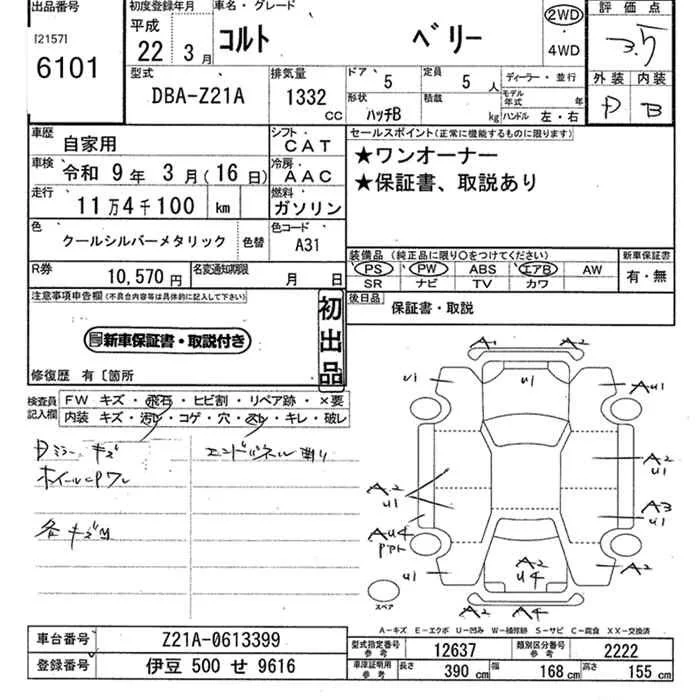 出品番号 初度登録年月 車名・グレード 2WD 評価点
[2157] 平成 コルト ベリー 4WD 3.5
6101 22年 3月
型式 排気量 ドア 5 定員 5人 ディーラー・並行 外装 内装
DBA-Z21A 1332 CC 形状 ハッチB 積載 kg モデル年式 年 ハンドル 左・右 D B
車歴 自家用 シフト CAT セールスポイント(正常に機能するものに限ります)
車検 令和 9年 3月(16日) 冷房 AAC ★ワンオーナー
走行 11万4千100 km 燃料 ガソリン ★保証書、取説あり
色 クールシルバーメタリック 色替 色コード A31
装備品(純正品に限り○をつけてください) 新車保証書
R券 10,570円 名変通知期限 月 日 PS PW ABS エアB AW 有・無
SR ナビ TV カワ
注意事項申告欄(不具合内容等は具体的に記入して下さい) 初出品 後日品 保証書・取説
新車保証書・取説付き
修復歴 有〔箇所
検査員記入欄 FW キズ・飛石・ヒビ割・リペア跡・×要
内装 キズ・汚レ・コゲ・穴・スレ・キレ・破レ
Dミラー キズ エンドパネル
ホイールCPワレ
各キズ
A1 A2
U1 U1 A U1
A2 U1 A2 U1
A3 U1
A U4
U1 A2 U4 A2
スペア A2 A4
A-キズ E-エクボ U-凹み W-補修跡 S-サビ C-腐食 XX-交換済
車台番号 Z21A-0613399 型式指定番号 参考 12637 類別区分番号 参考 2222
登録番号 伊豆 500 せ 9616 車庫証明用 参考 長さ 390 cm 幅 168 cm 高さ 155 cm